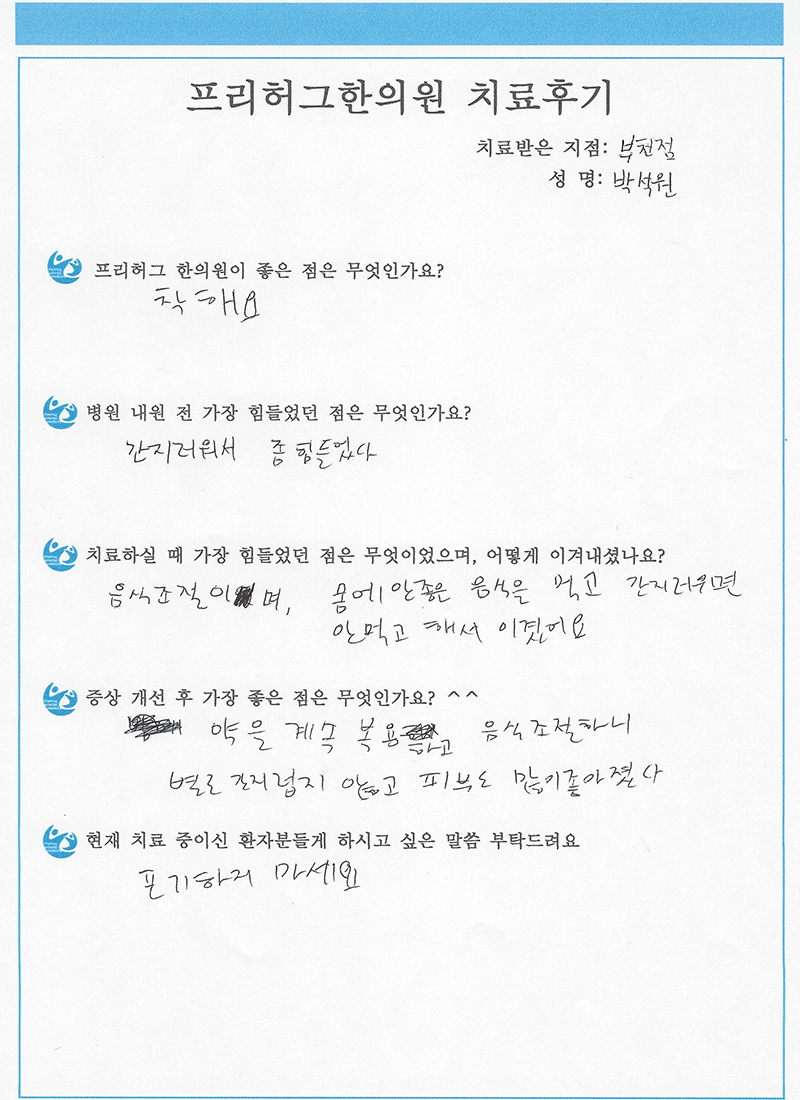 프리허그한의원 치료후기
치료받은 지점: 부천점
성 명: 박석원
프리허그 한의원이 좋은 점은 무엇인가요?
착해요
병원 내원 전 가장 힘들었던 점은 무엇인가요?
간지러워서 좀 힘들었다
치료하실 때 가장 힘들었던 점은 무엇이었으며, 어떻게 이겨내셨나요?
음식조절이며, 몸에 안좋은 음식을 먹고 간지러우면
안먹고 해서 이겼어요
증상 개선 후 가장 좋은 점은 무엇인가요? ^^
약을 계속 복용하고 음식조절하니
별로 간지럽지 않고 피부도 많이좋아졌다
현재 치료 중이신 환자분들게 하시고 싶은 말씀 부탁드려요
포기하지 마세요